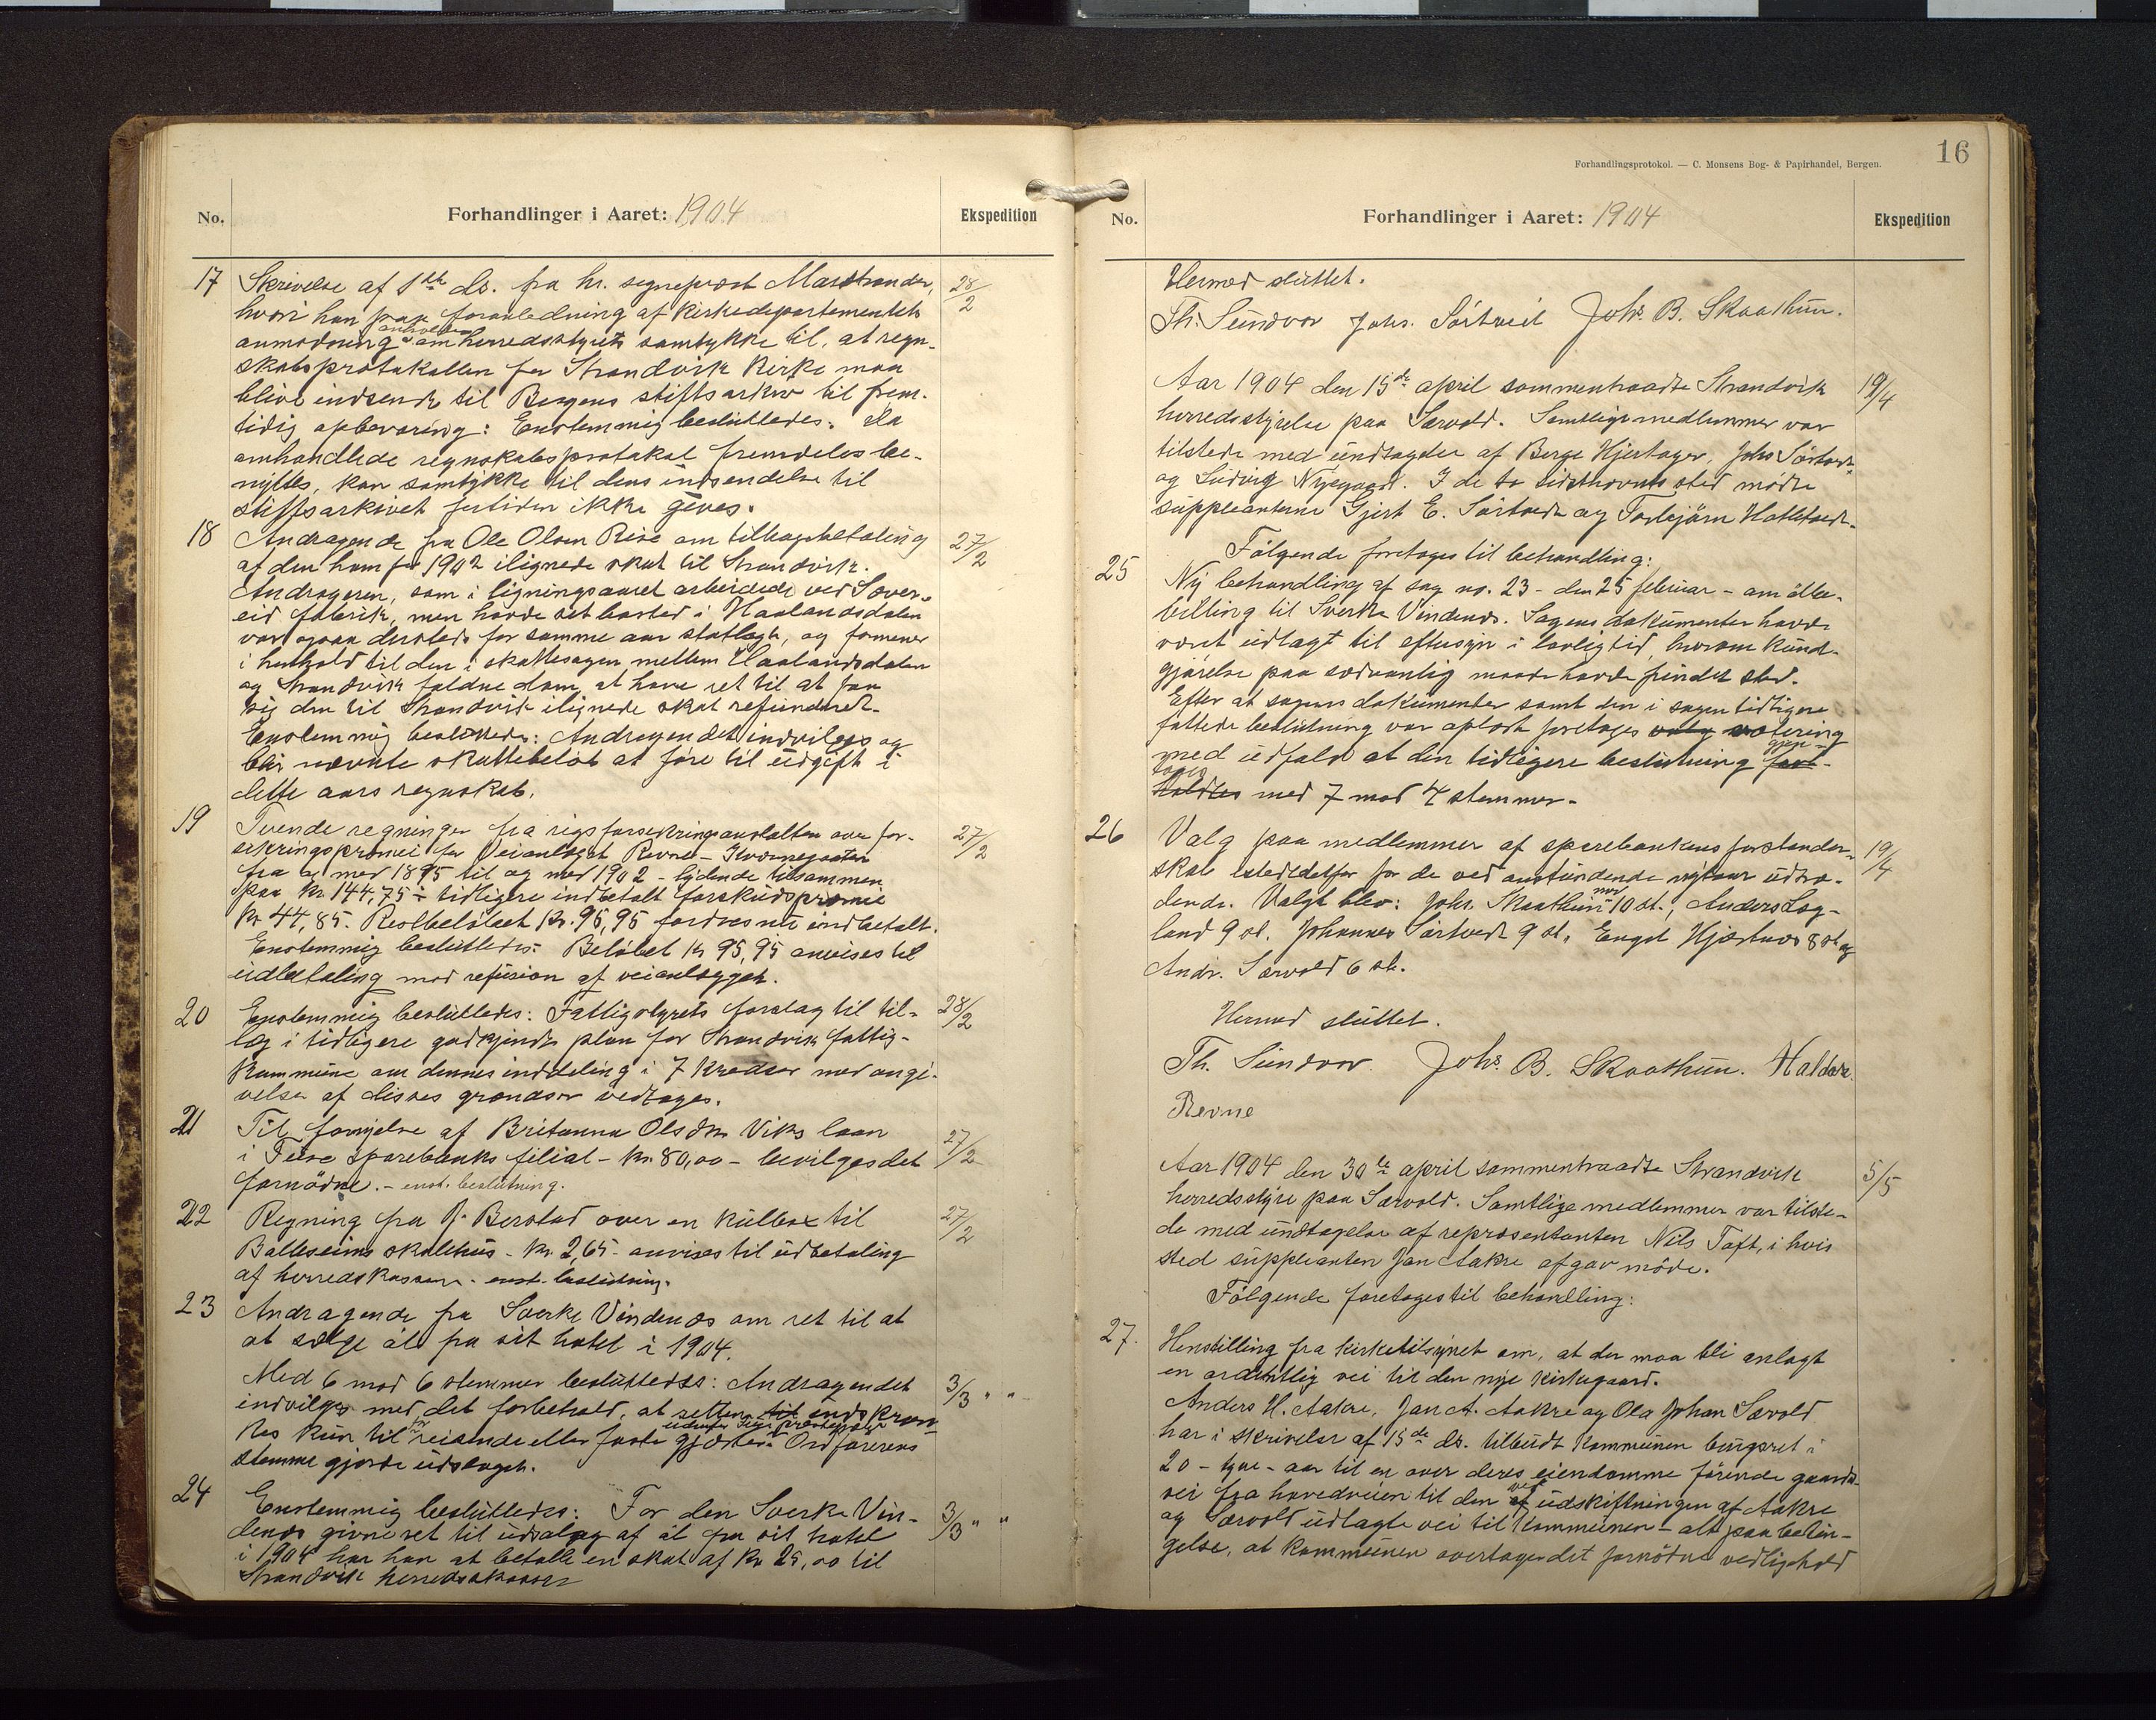 No.
Forhandlinger i Aaret: 1904
Ekspedition
17 Skrivelse af 1ste ds. fra hr. sogneprest Marstrander, 28/2
hvori han paa foranledning af Kirkedepartementets
anmodning anholder om herredsstyrets samtykke til, at regn-
skabsprotokollen for Strandvik Kirke maa
blive indsendt til Bergens stiftsarkiv til frem-
tidig opbevaring: Enstemmig besluttedes: Da
omhandlede regnskabsprotokol fremdeles be-
nyttes, kan samtykke til dens indsendelse til
stiftsarkivet fortiden ikke gives.
18 Andragende fra Ole Olsen Rise om tilbagebetaling 27/2
af den ham for 1902 ilignede skat til Strandvik.
Andrageren, som i ligningsaaret arbeidede ved Sæver-
eid fabrik, men havde sit bosted i Haalandsdalen
var ogsaa dersteds for samme aar skatlagt, og formener
i henhold til den i skattesagen mellem Haalandsdalen
og Strandvik faldne dom at have ret til at faa
sig den til Strandvik ilignede skat refunderet.
Enstemmig besluttedes: Andragendet indvilges og
blir nævnte skattebeløb at føre til udgift i
dette aars regnskab.
19 Tvende regninger fra rigsforsikringsanstalten over for- 27/2
sikringspræmie for Veianlægget Revne - Kvernegaten
fra og med 1895 til og med 1902 - lydende tilsammen
paa kr. 144,75 ÷ tidligere indbetalt forskudspræmie
kr. 44,85. Restbeløbet Kr. 95,95 fordres nu indbetalt.
Enstemmig besluttedes: Beløbet kr 95,95 anvises til
udbetaling mod refusion af veianlægget.
20 Enstemmig besluttedes: Fattigstyrets forslag til til- 28/2
læg i tidligere godkjendt plan for Strandvik fattig-
kommune om dennes inddeling i 7 Kredser med angi-
velse af disses grændser vedtages.
21 Til fornyelse af Britanna Olsdtr Viks laan 27/2
i Fuse sparebanks filial - kr. 80,00 - bevilges det
fornødne. - enst. beslutning.
22 Regning fra J. Berstad over en kulbox til 27/2
Balteseims skolehus - kr. 2,65 - anvises til udbetaling
af herredskassen. - enst. beslutning.
23 Andragende fra Sverke Vindenes om ret til at
at sælge øl fra sit hotel i 1904.
Med 6 mod 6 stemmer besluttedes: Andragendet 3/3 " "
indvilges med det forbehold, at retten til indskræn-
kes kun til reisende eller faste gjæster. Ordførerens
stemme gjorde udslaget.
24 Enstemmig besluttedes: For den Sverke Vin- 3/3 " "
denes givne ret til udsalg af øl fra sit hotel
i 1904 har han at betale en skat af kr 25,00 til
Strandvik herredskasse
Forhandlingsprotokol. — C. Monsens Bog- & Papirhandel, Bergen.
16
No.
Forhandlinger i Aaret: 1904
Ekspedition
Hermed sluttet.
Th. Sundvor Johs. Sörtveit Johs. B. Skaathun.
Aar 1904 den 15de april sammentraadte Strandvik 19/4
herredsstyrelse paa Særvold. Samtlige medlemmer var
tilstede med undtagelse af Berge Hjertager, Johs Sörtvedt
og Ludvig Nygaard. I de to sidsthævntes sted mødte
suppleanterne Gjert E. Sörtvedt og Torbjörn Hatletvedt.
Følgende foretoges til behandling:
25 Ny behandling af sag no. 23 - den 25 februar - om ølbe-
villing til Sverke Vindenes. Sagens dokumenter havde
været udlagt til eftersyn i lovlig tid, hvorom kund-
gjørelse paa sædvanlig maade havde fundet sted.
Efter at sagens dokumenter samt den i sagen tidligere
fattede beslutning var oplæst foretoges valg votering
med udfald at den tidligere beslutning fast- gjen-
toges holdtes med 7 mod 4 stemmer.
26 Valg paa medlemmer af sparebankens forstander- 19/4
skab istedetfor for de ved anstundende nytaar udtræ-
dende. Valgt blev: Johs. Skaathun med 10 st., Anders Log-
land 9 st. Johannes Sörtvedt 9 st., Engel Hjartnes 8 st og
Andr. Særvold 6 st.
Hermed sluttet.
Th. Sundvor. Johs. B. Skaathun. Haldor
Revne
Aar 1904 den 30te april sammentraadte Strandvik 5/5
herredsstyre paa Særvold. Samtlige medlemmer var tilste-
de med undtagelse af repræsentanten Nils Toft, i hvis
sted suppleanten Jan Aakre afgav møde.
Følgende foretoges til behandling:
27. Henstilling fra kirketilsynet om, at der maa bli anlagt
en ordentlig vei til den nye kirkegaard.
Anders H. Aakre, Jan A. Aakre og Ola Johan Særvold
har i skrivelse af 15de ds. tilbudt kommunen brugsret i
20 - tyve - aar til en over deres eiendomme førende gaards-
vei fra hovedveien til den ved udskiftningen af Aakre
og Særvold udlagte vei til Kommunen - alt paa betin-
gelse, at kommunen overtager det fornødne vedligehold